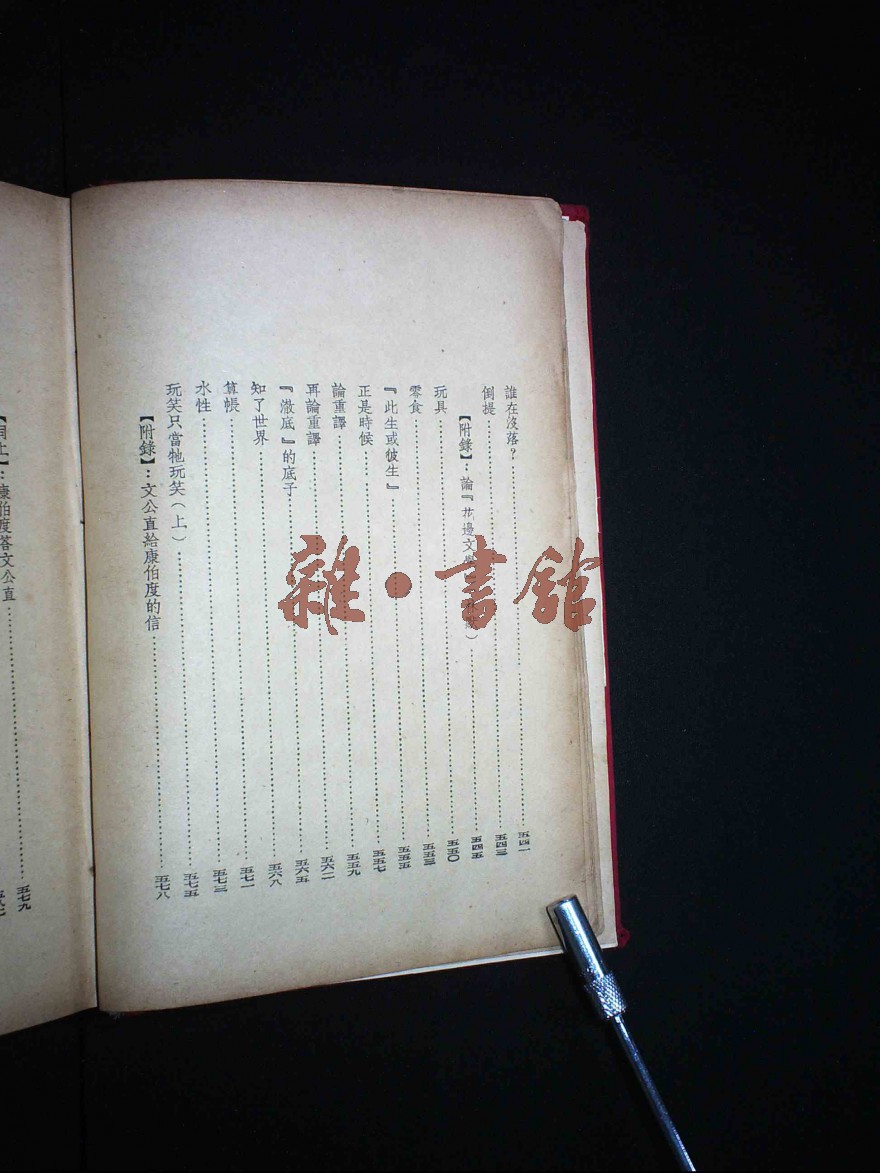 誰在沒落？……五四一
倒提……五四三
【附錄】：論『花邊文學』（林默）……五四五
玩具……五五〇
零食……五五三
『此生或彼生』……五五五
正是時候……五五七
論重譯……五五九
再論重譯……五六二
『澈底』的底子……五六五
知了世界……五六八
算帳……五七一
水性……五七三
玩笑只當牠玩笑（上）……五七五
【附錄】：文公直給康伯度的信……五七八
【同上】：康伯度答文公直……五七九
雜·書館